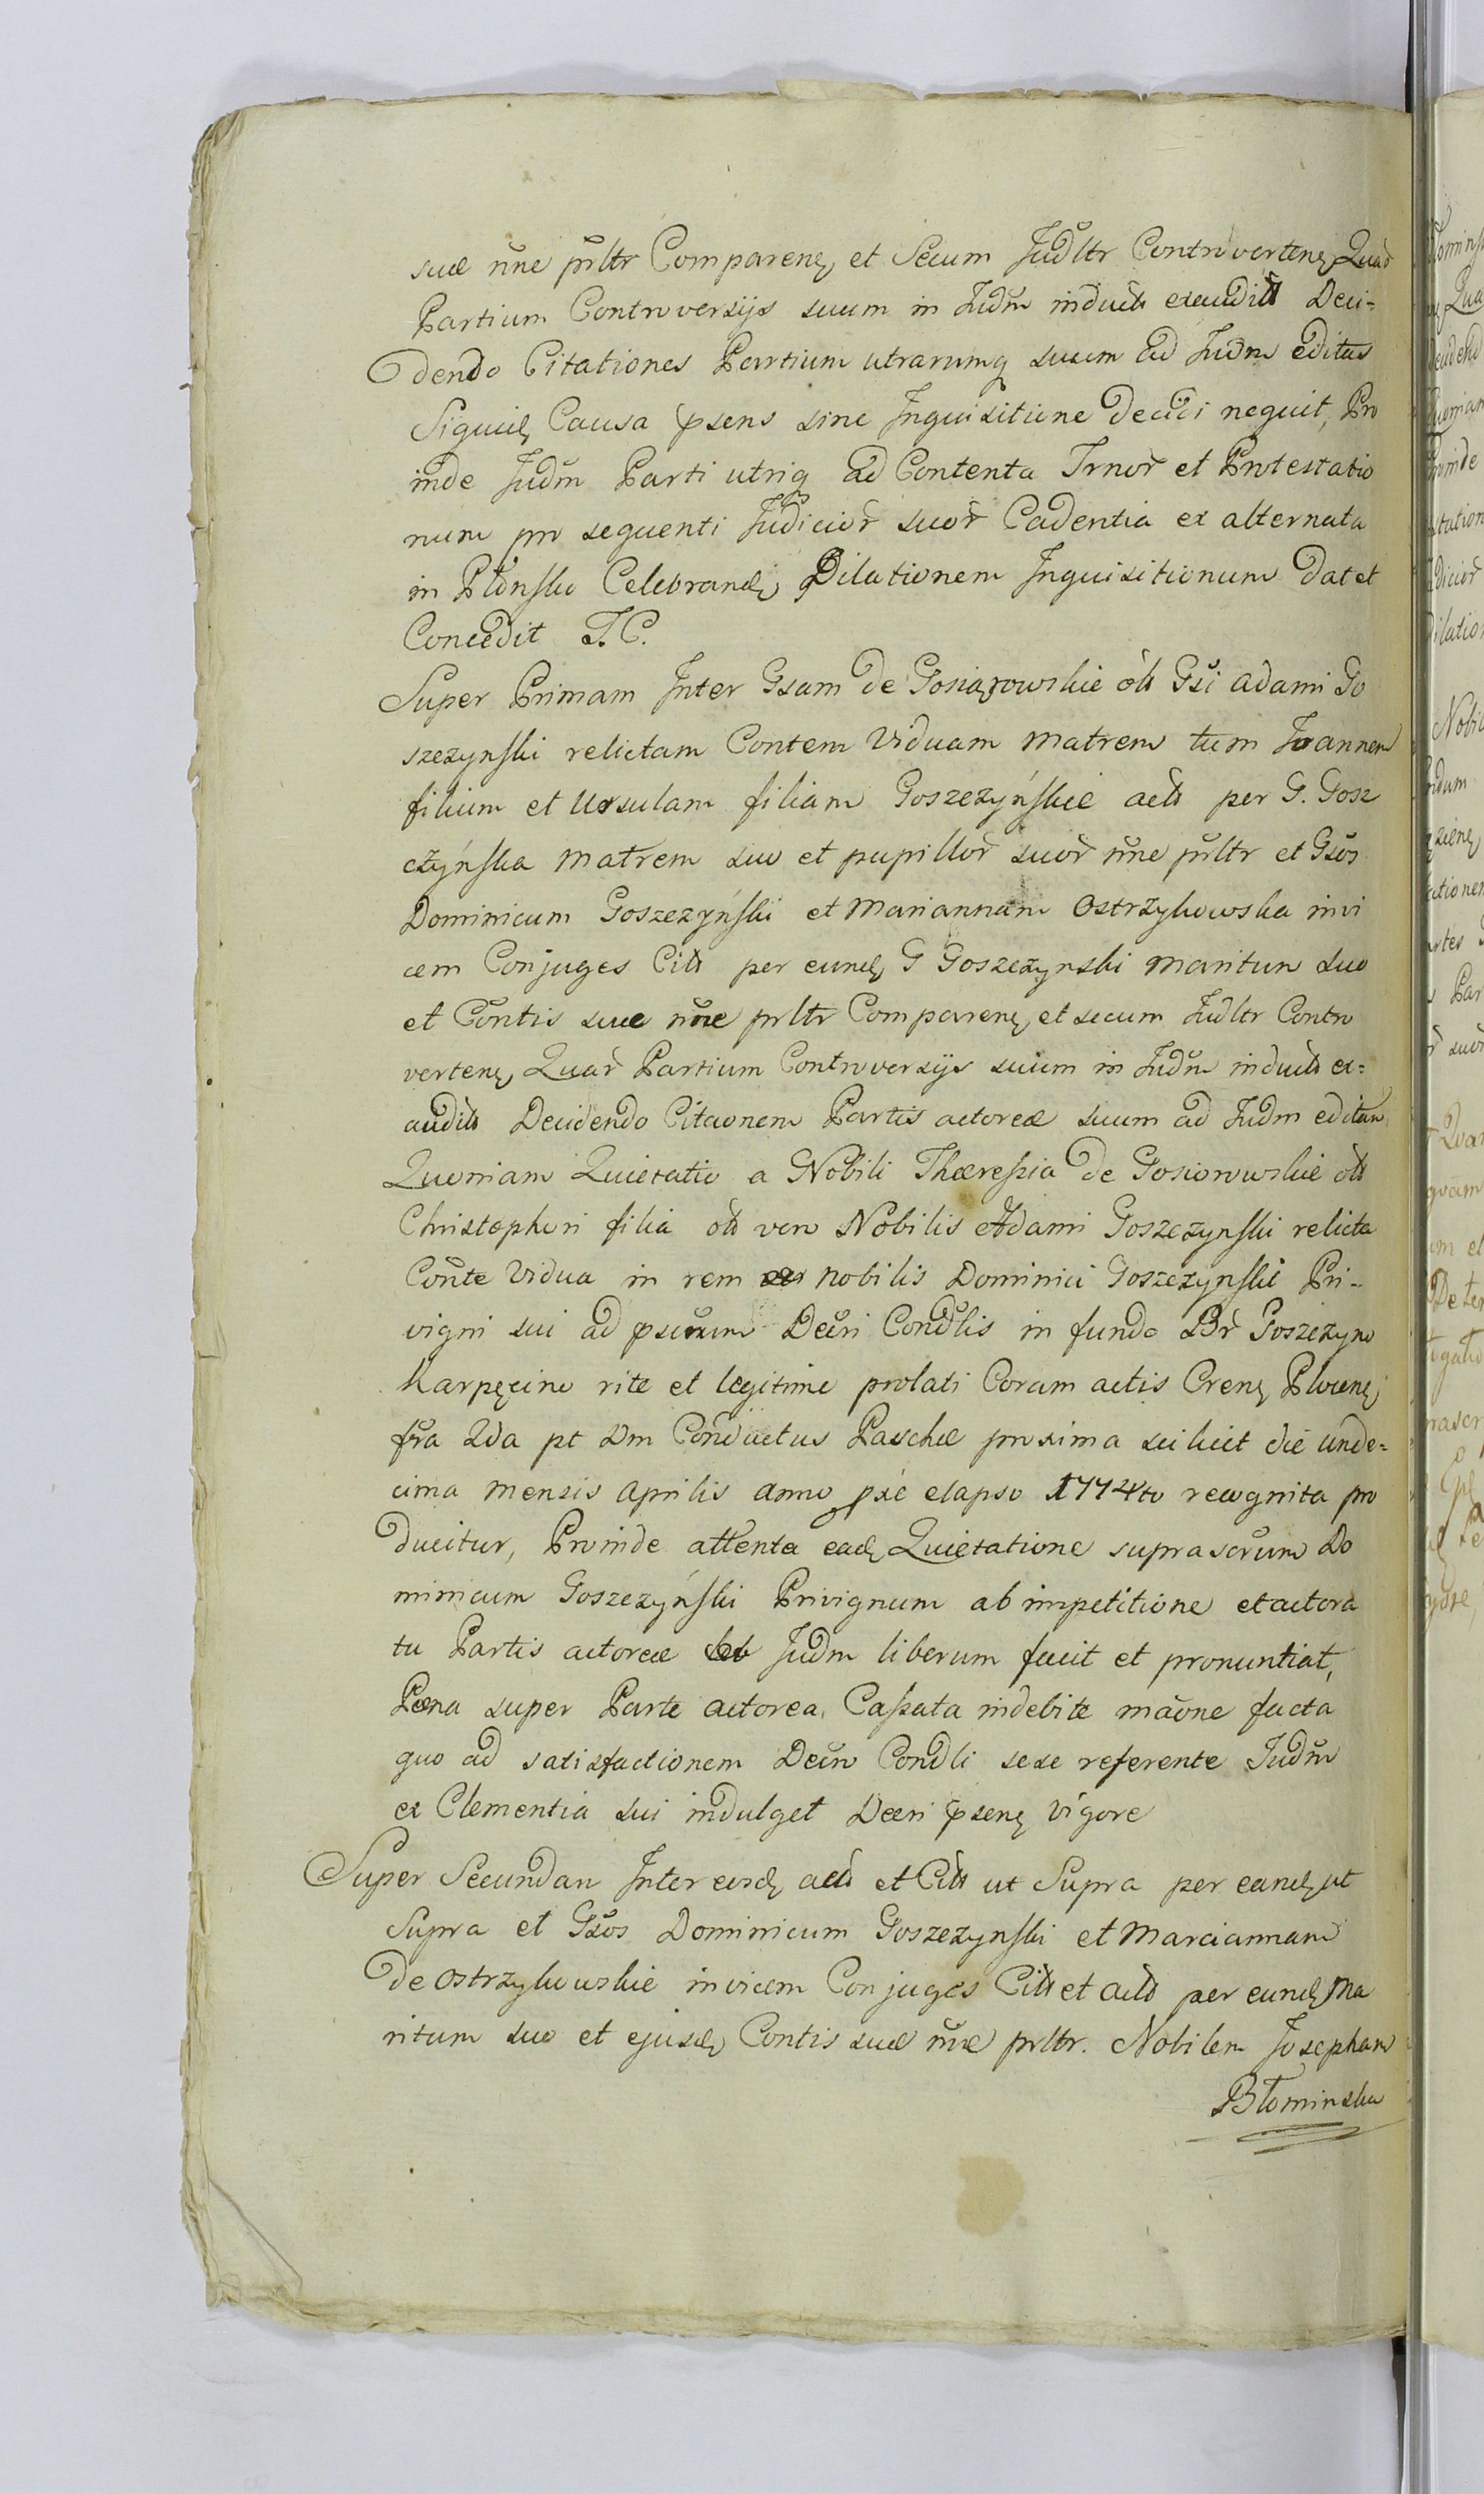 suæ nn̆e pr̆ltr Comparenȩ et Secum Jud̆ltr Controvertenȩ Quar̆
Partium Controversijs suum in Jud̆m induc̆ts exaudit̆s Deci=
dendo Citationes Partium utrarumq suum ad Jud̆m editas
Siquiḑ Causa p̱sens sine Inquisitione decidi nequit, Pro
inde Jud̆m Parti utriq ad Contenta Trnor̆ et Protestatio
num pro sequenti Judicior̆ suor̆ Cadentia ex alternata
in Płonsko Celebranḑ Dilationem Inquisitionum dat et
Concedit T. C.
Super Primam Inter Gsam de Gosiorowskie ol̆s Gsi̇ adami Go
szczynski relictam Contem Viduam Matrem tum Joannem
filium et Ursulam filiam Goszczyńskie act̆s per G. Gosz
czyńska Matrem suo et pupillor̆ suor̆ nn̆e pr̆ltr et Gsŏs
Dominicum Goszczyński et Mariannam Ostrzykowska invi
cem Conjuges Cit̆s per eunḑ G Goszczynski Maritum suo
et Con̆tis suæ nn̆e prltr Comparenȩ et secum Jud̆ltr Contro
vertenȩ Quar̆ Partium Controversijs suum in Jud̆m induct̆s ex=
audit̆s Decidendo Citaonem Partis actoreæ suum ad Judm editam
Quoniam Quietatio a GNobili Theressia de Gosiorowskie ol̆s
Christophori filia ol̆s vero Nobilis Adami Goszczynski relicta
Con̆te Vidua in rem nobilis Dominici Goszczynski Pri-
vigni sui ad Decri Cond̆lis in fundo Br̆ Goszczyno
Karpęcino rite et legitime prolati Coram actis Crenȩ Plocenȩ
fr̆a 2da pt Dm Con̆ductus Paschæ proxima scilicet die unde=
cima Mensis Aprilis anno elapso 1774to recognita pro
ducitur, Proinde attenta eaḑ Quietatione suprascrum Do
minicum Goszczyński Privignum ab impetitione et actora
tu Partis actoreæ Judm liberum facit et pronuntiat,
Pæna super Parte actorea, Cassata indebite măone facta
quo ad satisfactionem Decro Condli sese referente Jud̆m
ex Clementia sui indulget Decri p̱senȩ vigore
Super Secundam Inter eosḑ act̆s et Cit̆s ut Supra per eanḑ ut
Supra et Gsŏs Dominicum Goszczynski et Marciannam
de Ostrzykowskie invicem Conjuges Cit̆s et act̆s per eunḑ Ma
ritum suo et ejusḑ Contis suæ nn̆e prltr. Nobilem Josepham
Błominska